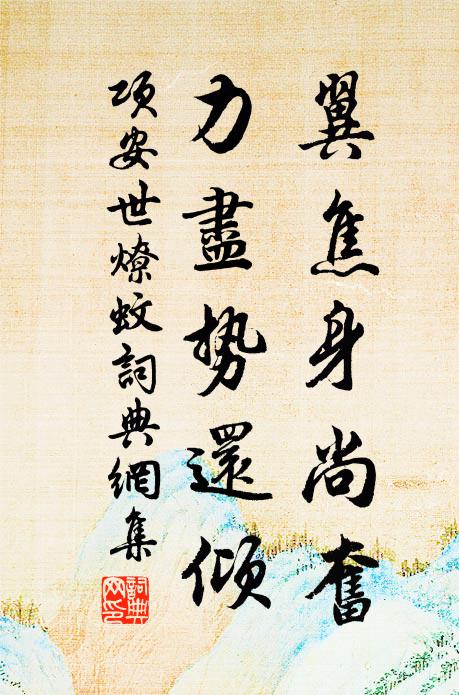 翼焦身尚奮
力盡勢還傾
項安世燎蚊詞典網集
詞典